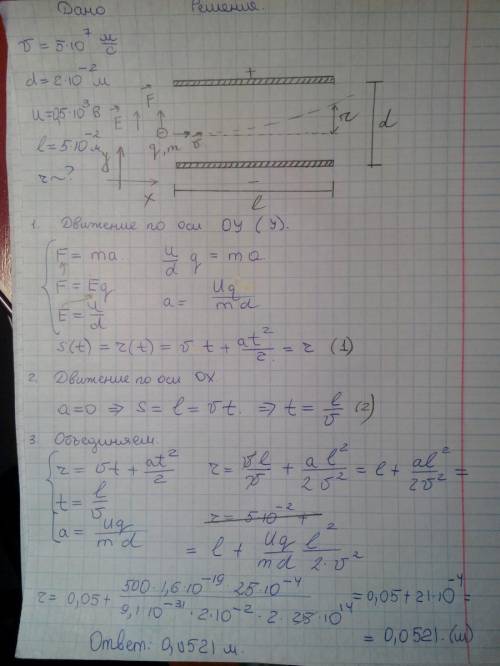 Дано Решения.
v = 5·10⁷ м/с
d = 2·10⁻² м
u = 0,5·10³ В
l = 5·10⁻² м
r - ?
+
F
E
q, m
v
r
d
y
x
−
l
1. Движение по оси ОУ (У).
F = ma
u/d q = ma
F = Eq
a = Uq/md
E = u/d
s(t) = r(t) = v t + at²/2 = r (1)
2. Движение по оси ОХ
a=0 ⇒ s = l = vt. ⇒ t = l/v (2)
3. Объединяем.
r = vt + at²/2
t = l/v
a = Uq/md
r = vl/v + al²/2v² = l + al²/2v² =
r = 5·10⁻² +
= l + Uq/md l²/2·v²
r = 0,05 + 500·1,6·10⁻¹⁹·25·10⁻⁴/9,1·10⁻³¹·2·10⁻²·2·25·10¹⁴ = 0,05 + 21·10⁻⁴ =
= 0,0521 (м)
Ответ: 0,0521 м.